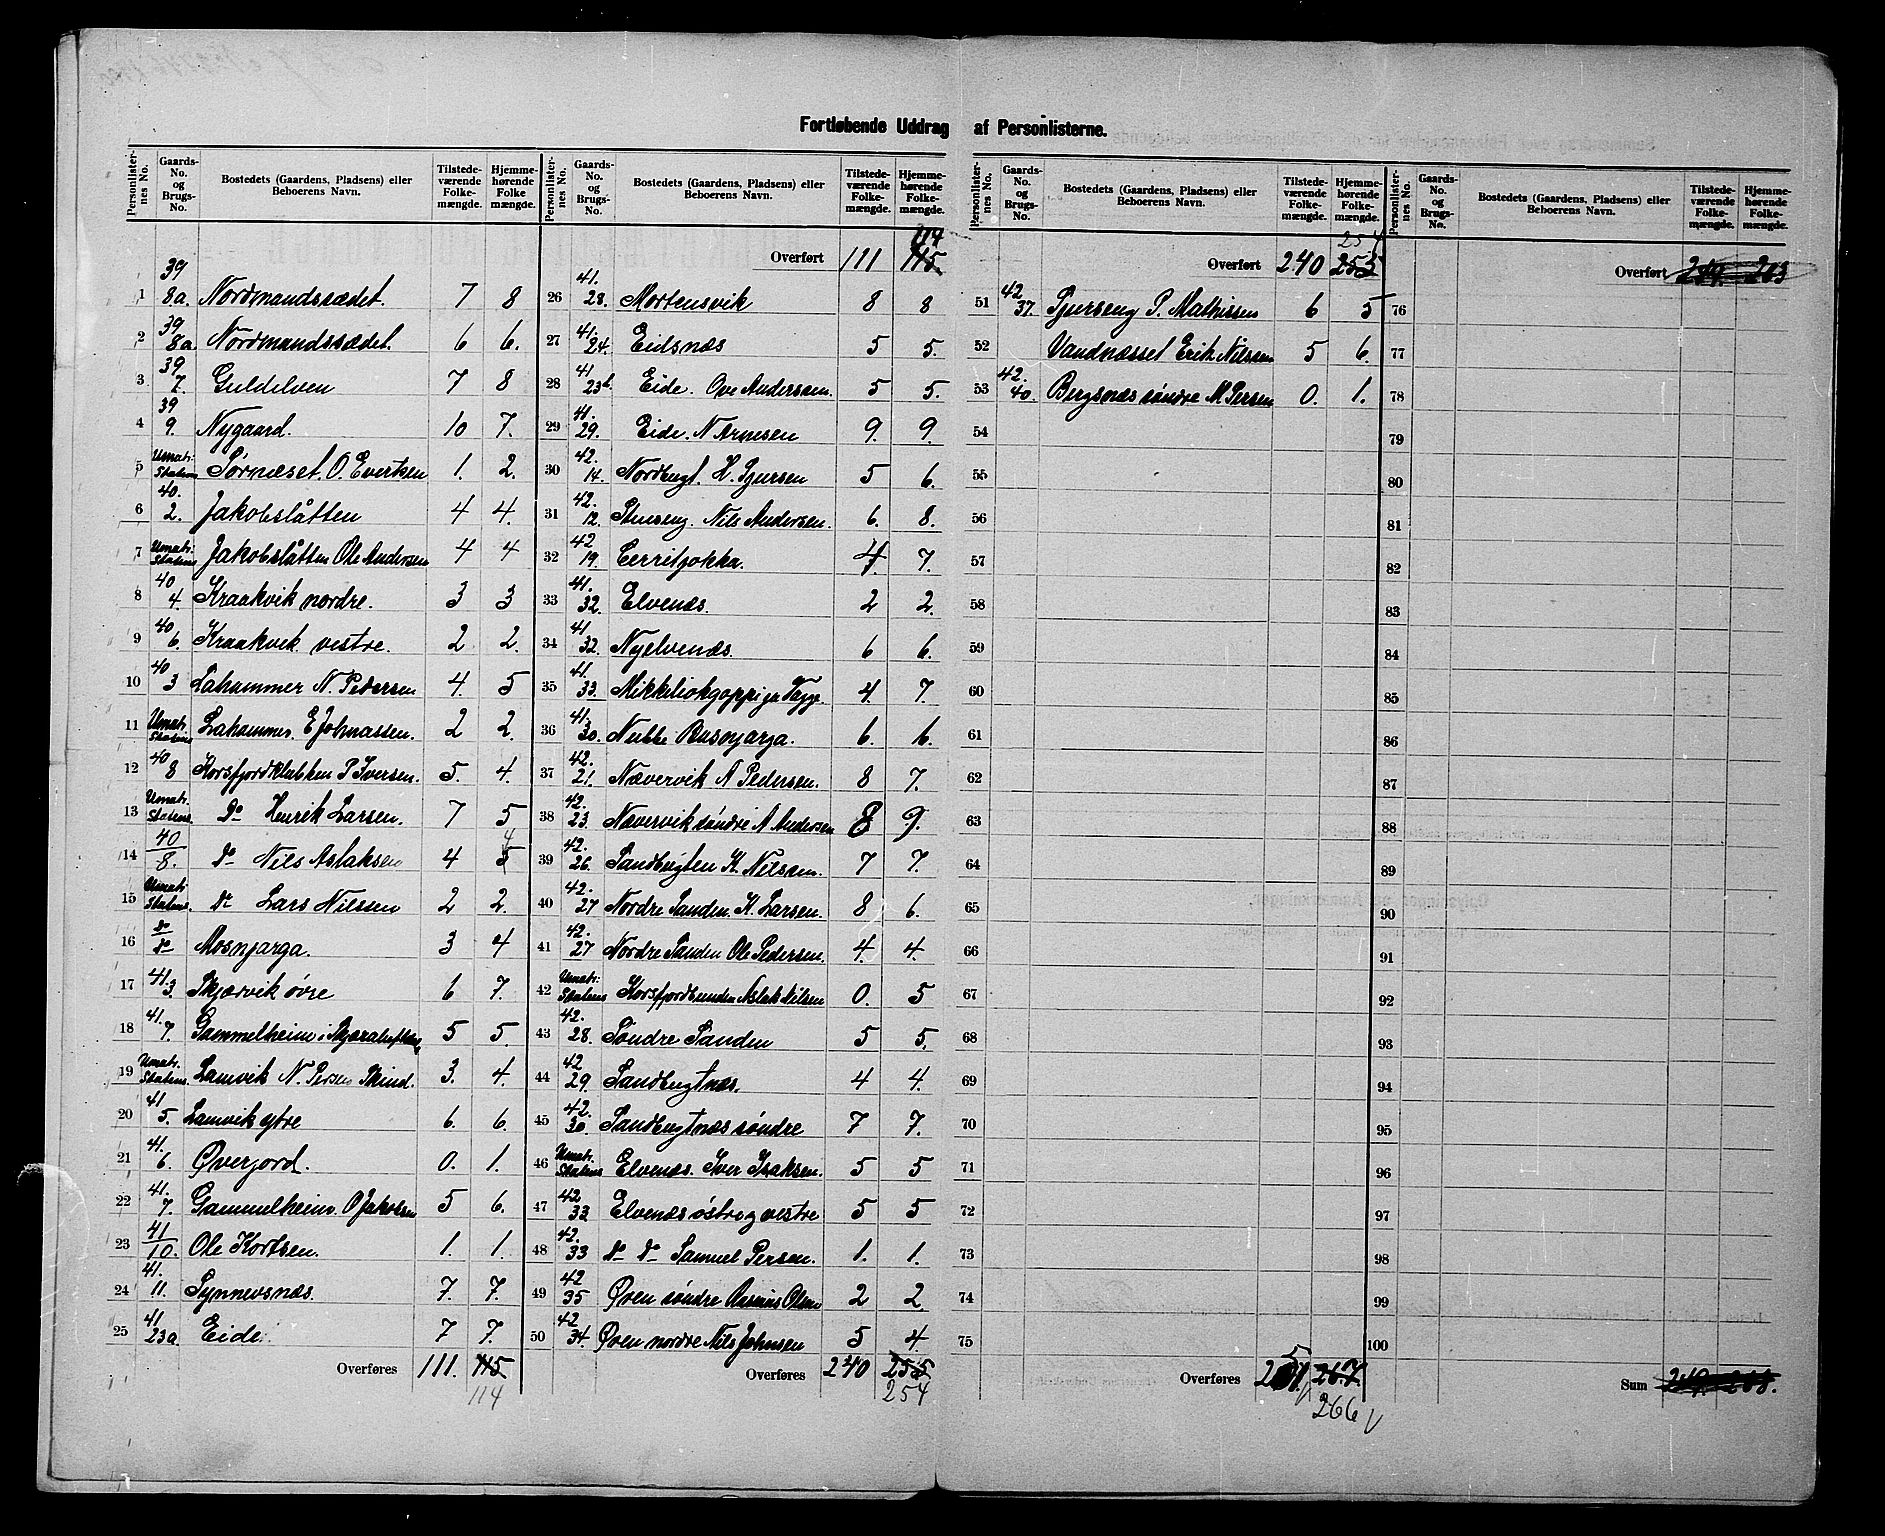 Fortløbende Uddrag af Personlisterne.
Personlister-nes No. Gaards-No. og Brugs-No. Bostedets (Gaardens, Pladsens) eller Beboerens Navn. Tilstede-værende Folke-mængde. Hjemme-hørende Folke mængde.
1 39 8a Nordmandssædet. 7 8
2 39 8a Nordmandssædet. 6 6.
3 39 7. Guldelven 7 8
4 39 9. Nygaard. 10 7.
5 Umatr. Statens Sørnæset. O. Evertsen 1. 2.
6 40. 2. Jakobslåtten 4 4.
7 Umatr: Statens Jakobslåtten Ole Andersen 4 4
8 40 4. Kraakvik nordre. 3 3
9 40 6. Kraakvik vestre. 2 2.
10 40 3 Lahammer N. Pedersen 4. 5
11 Umatr. Statens Lahammer. E Johnassen. 2 2.
12 40 8 Korsfjordklubben P Iversen. 5. 4.
13 Umatr. Statens. Do Henrik Larsen. 7 5
14 40 8. do Nils Aslaksen 4 5 4
15 Umatr. Statens. do Lars Nilssen 2 2.
16 do do Mosnjarga. 3 4
17 41. 3. Skjærvik øvre 6 7.
18 41. 7. Gammelheim i 5 5.
19 Umatr. Statens Lamvik N. Persen Skind. 3. 4.
20 41 5. Lamvik ytre 6. 6.
21 41. 6. Øverjord. 0. 1.
22 41. 7. Gammelheim. O Jakobsen 5 6.
23 41 10. Ole Kortsen. 1. 1.
24 41. 11. Synnevsnæs. 7. 7.
25 41 23a Eide. 7 7.
Overføres 111. 115
114
Personlister-nes No. Gaards-No. og Brugs-No. Bostedets (Gaardens, Pladsens) eller Beboerens Navn. Tilstede-værende Folke-mængde. Hjemme-hørende Folke-mængde.
114
Overført 111 115
26 41. 28. Mortensvik 8 8
27 41. 24. Eidsnæs 5 5.
28 41 23b. Eide. Ove Anderssen. 5 5.
29 41. 29. Eide. N Arnesen 9. 9.
30 42. 14. Nordbugt. H. Sjursen 5 6.
31 42. 12. Stenseng. Nils Andersen. 6. 8.
32 42 19. Cerritjokka. 4 7.
33 41. 32. Elvenæs. 2 2.
34 41 32. Nyelvenæs. 6 6.
35 41. 33. 4. 7.
36 41. 30. Nubbe Basnjarga. 6. 6.
37 42. 21. Nævervik A Pedersen. 8 7.
38 42. 23. Nævervik søndre A Andersen 8 9.
39 42. 26. Sandbugten K. Nilssen. 7 7.
40 42. 27 Nordre Sanden. K. Larsen. 8 6.
41 42. 27 Nordre Sanden Ole Pedersen. 4 4.
42 Umatr. Statens Korsfjordbunden Aslak Nilsen 0. 5
43 42. 28. Søndre Sanden 5 5.
44 42 29. Sandbugtnæs. 4 4.
45 42. 30. Sandbugtnæs søndre 7 7.
46 Umatr. Statens Elvenæs. Iver Isaksen. 5 5
47 42 33 Elvenæs østre og vestre 5 5
48 42. 33 do do Samuel Persen. 1. 1.
49 42 35 Øren søndre Rasmus Olsen 2 2.
50 42 34. Øren nordre Nils Johnsen 5 4
Overføres 240 255
254
Personlister-nes No. Gaards-No. og Brugs-No. Bostedets (Gaardens, Pladsens) eller Beboerens Navn. Tilstede-værende Folke-mængde. Hjemme-hørende Folke-mængde.
254
Overført 240 255
51 42 37. Sjurseng P. Mathissen 6 5
52 Vandnæsset Erik Nilssen 5 6.
53 42. 40. Bergsnæs søndre M. Persen 0. 1.
54
55
56
57
58
59
60
61
62
63
64
65
66
67
68
69
70
71
72
73
74
75
Overføres 251. 267.
266
Personlister-nes No. Gaards-No. og Brugs-No. Bostedets (Gaardens, Pladsens) eller Beboerens Navn. Tilstede-værende Folke-mængde. Hjemme-hørende Folke-mængde.
Overført
76
77
78
79
80
81
82
83
84
85
86
87
88
89
90
91
92
93
94
95
96
97
98
99
100
Sum